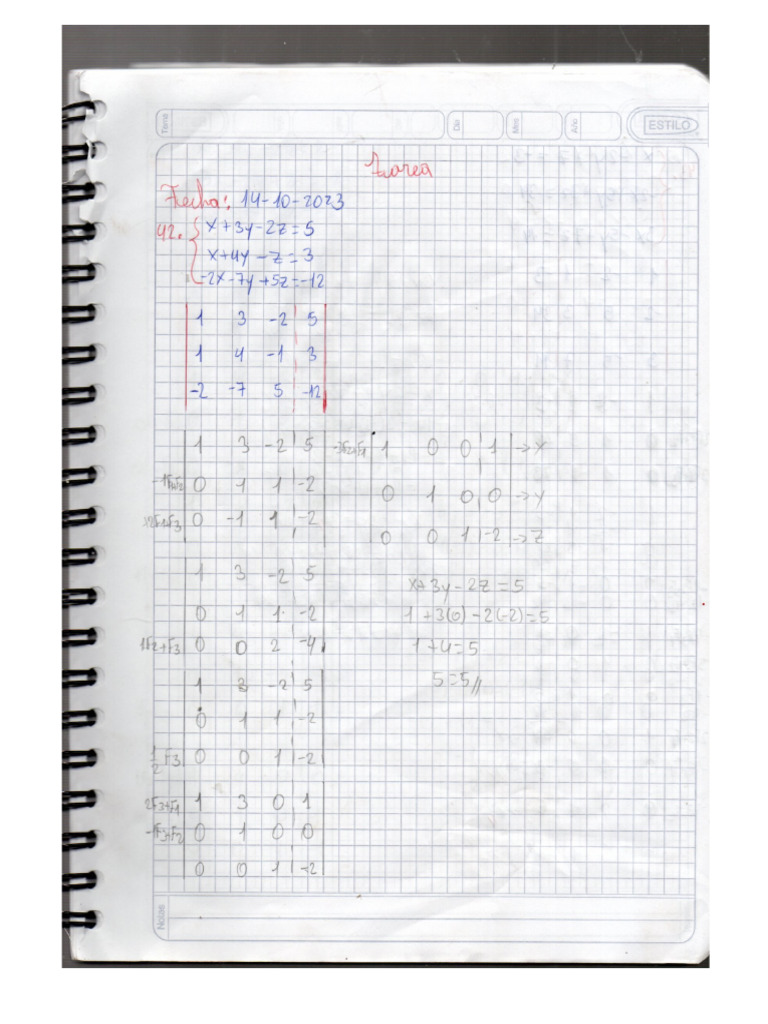 Tema
Dia
Mes
Año
ESTILO
Tarea
Fecha: 14-10-2023
42. { x+3y-2z=5
x+4y-z=3
-2x-7y+5z=-12
1 3 -2 5
1 4 -1 3
-2 -7 5 -12
1 3 -2 5
-1F1+F2 0 1 1 -2
x2F1+F3 0 -1 1 -2
1 3 -2 5
0 1 1 -2
1F2+F3 0 0 2 -4
1 3 -2 5
0 1 1 -2
1/2 F3 0 0 1 -2
2F3+F1 1 3 0 1
-1F3+F2 0 1 0 0
0 0 1 -2
-3F2+F1 1 0 0 1 → X
0 1 0 0 → Y
0 0 1 -2 → Z
x+3y-2z=5
1+3(0)-2(-2)=5
1+4=5
5=5//
Notas